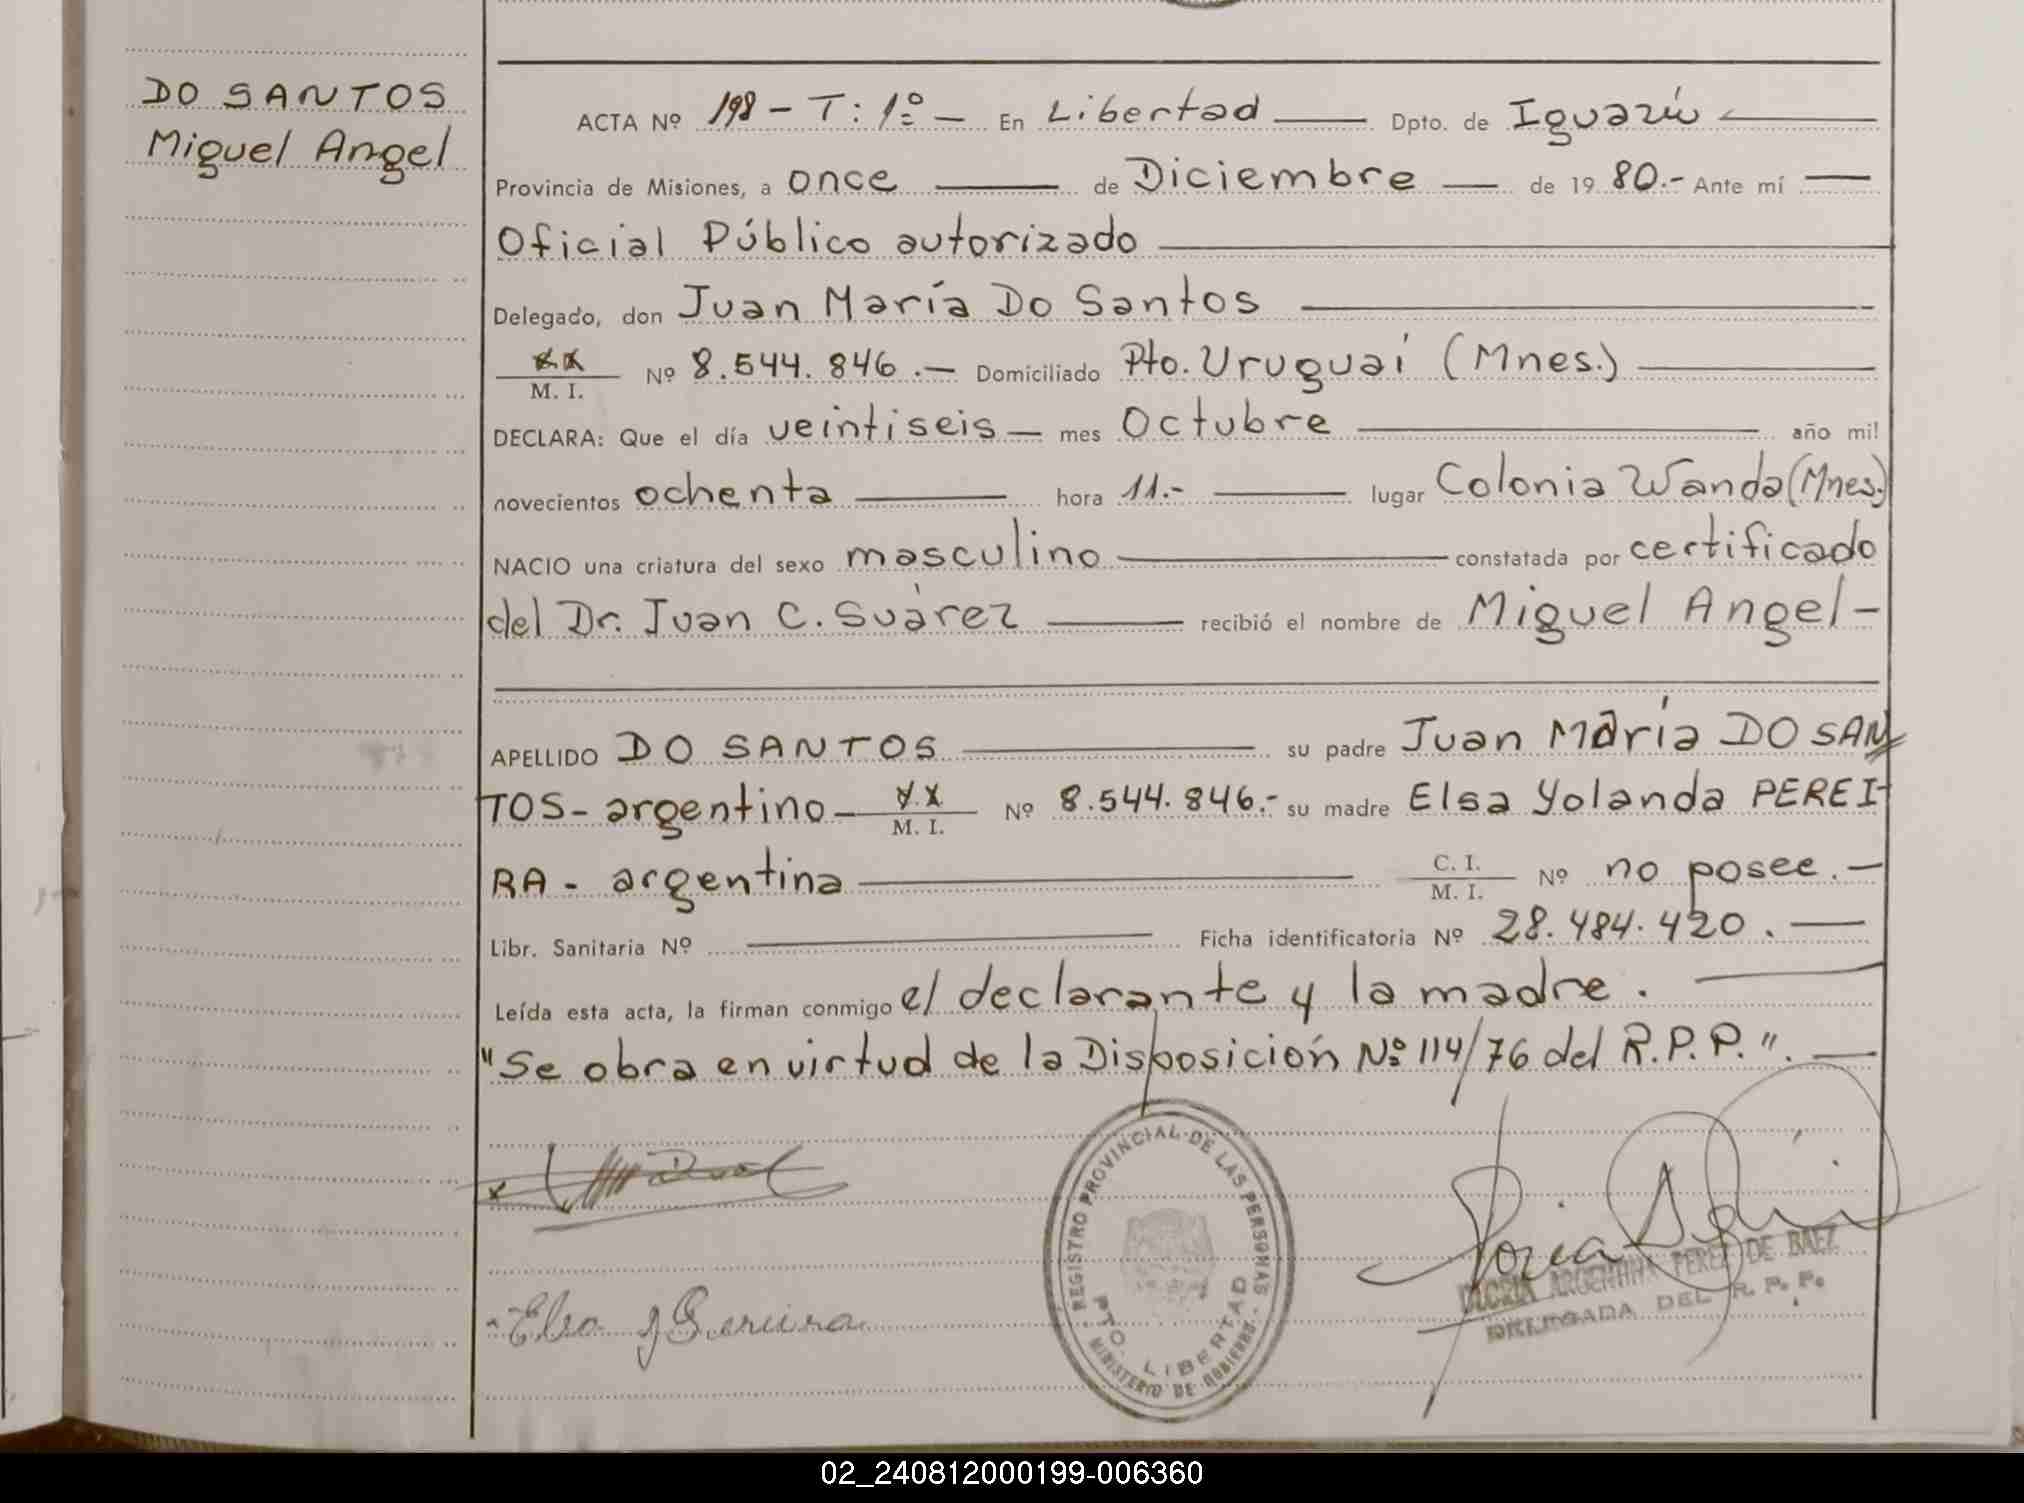 DO SANTOS
Miguel Angel
ACTA Nº 198 - T: 1º - En Libertad Dpto. de Iguazú
Provincia de Misiones, a once de Diciembre de 19 80.- Ante mí
Oficial Público autorizado
Delegado, don Juan María Do Santos
M. I. Nº 8.544.846.- Domiciliado Pto. Uruguaí (Mnes.)
DECLARA: Que el día veintiseis - mes Octubre año mil
novecientos ochenta hora 11.- lugar Colonia Wanda (Mnes.)
NACIO una criatura del sexo masculino constatada por certificado
del Dr. Juan C. Suárez recibió el nombre de Miguel Angel -
APELLIDO DO SANTOS su padre Juan María DO SAN
TOS - argentino - M. I. Nº 8.544.846.- su madre Elsa Yolanda PEREI-
RA - argentina C. I. M. I. Nº no posee. -
Libr. Sanitaria Nº Ficha identificatoria Nº 28.484.420. -
Leída esta acta, la firman conmigo el declarante y la madre.
"Se obra en virtud de la Disposición Nº 114/76 del R.P.P.". -
REGISTRO PROVINCIAL DE LAS PERSONAS
PTO. LIBERTAD
MINISTERIO DE GOBIERNO
Elsa Y Pereira
GLORIA ARGENTINA PEREZ DE BAEZ
DELEGADA DEL R. P. P.
02_240812000199-006360